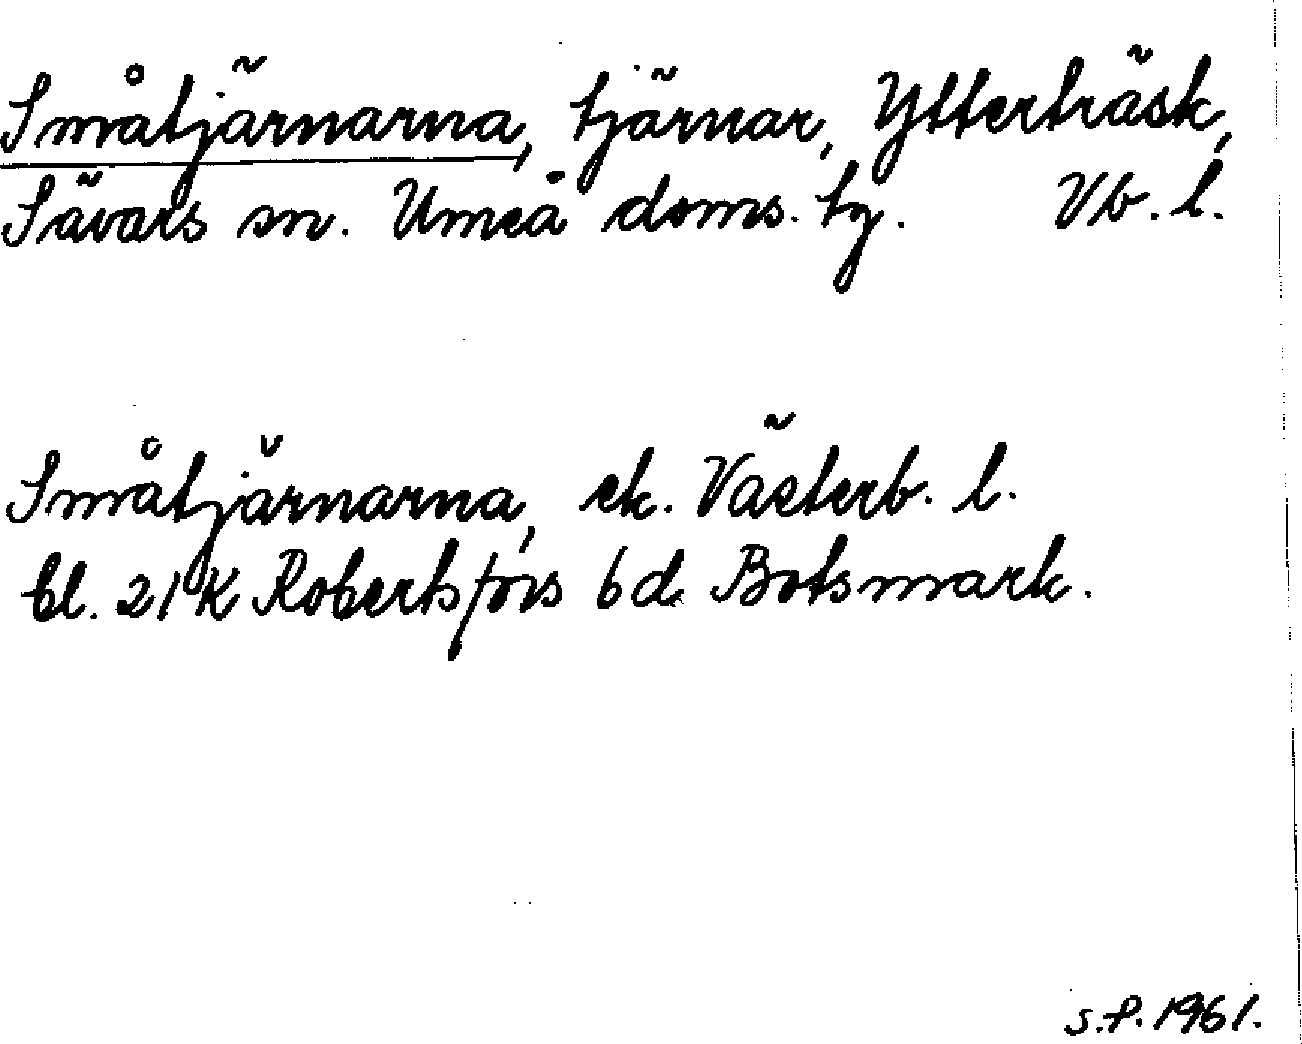 Småtjärnarna, tjärnar, Ytterträsk,
Sävars sn. Umeå doms. tg. Vb. l.
Småtjärnarna, ek. Västerb. l.
bl. 21K Robertsfors 6d Botsmark.
S.P. 1961.